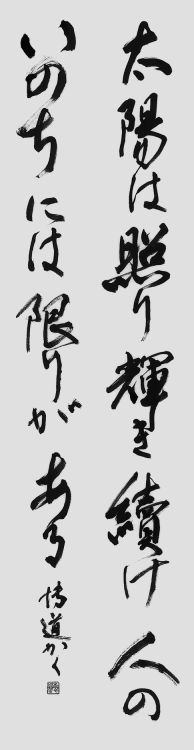 太陽は照り輝き續け人の
いのちには限りがある
道かく